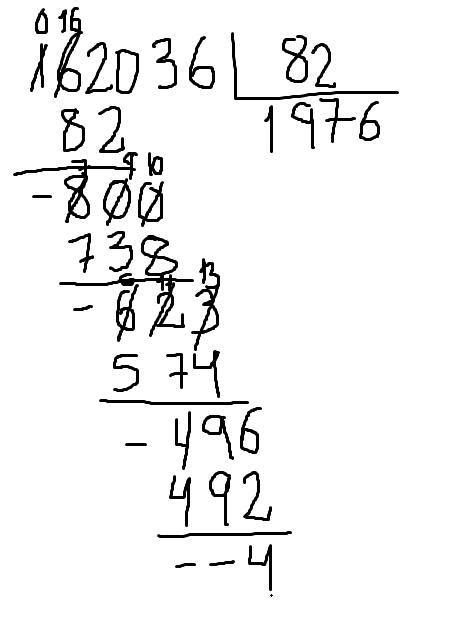 0 16
162036 82
82 1976
7 9 10
- 800
738
5 11 13
- 623
574
- 496
492
- - 4